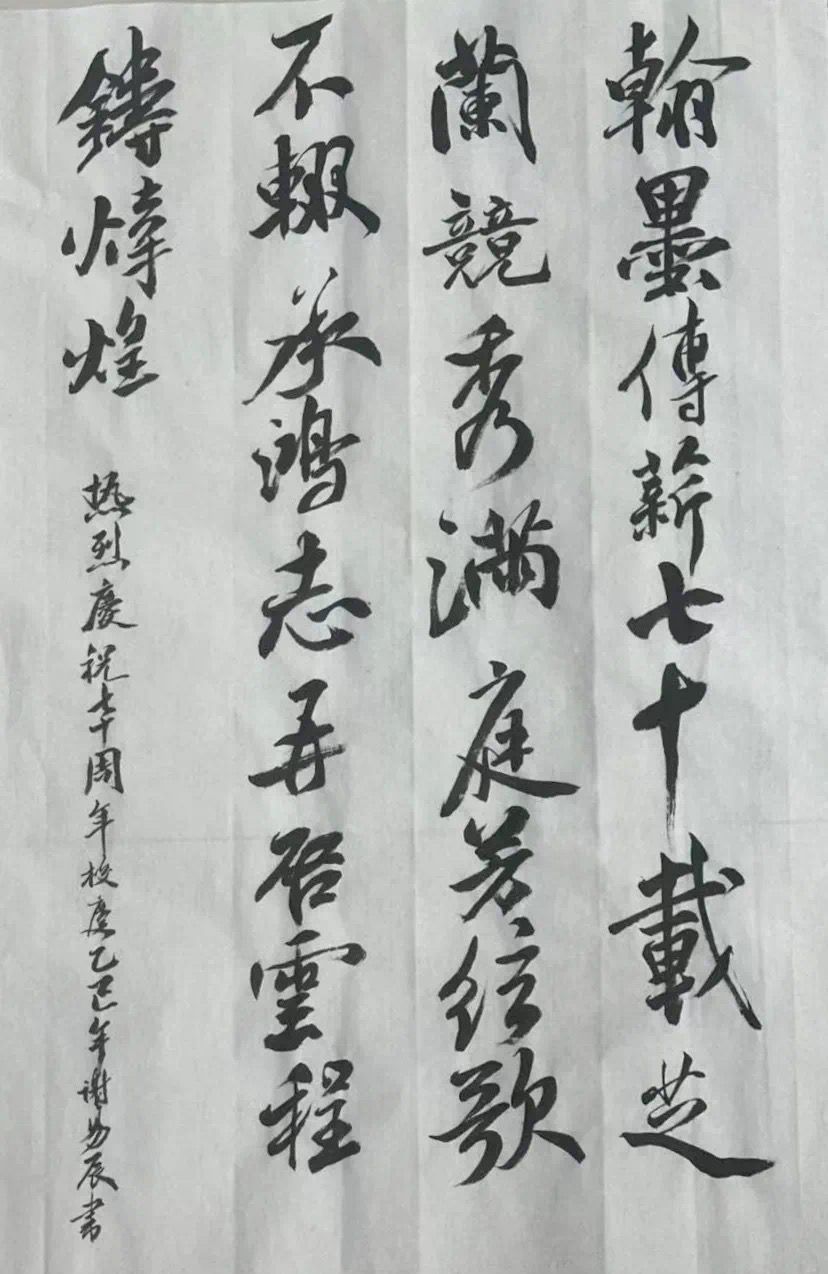 翰墨傳薪七十載芝
蘭競秀滿庭芳弦歌
不輟承鴻志再啓雲程
鑄煒煌
热烈慶祝七十周年校慶乙巳年谢易辰書